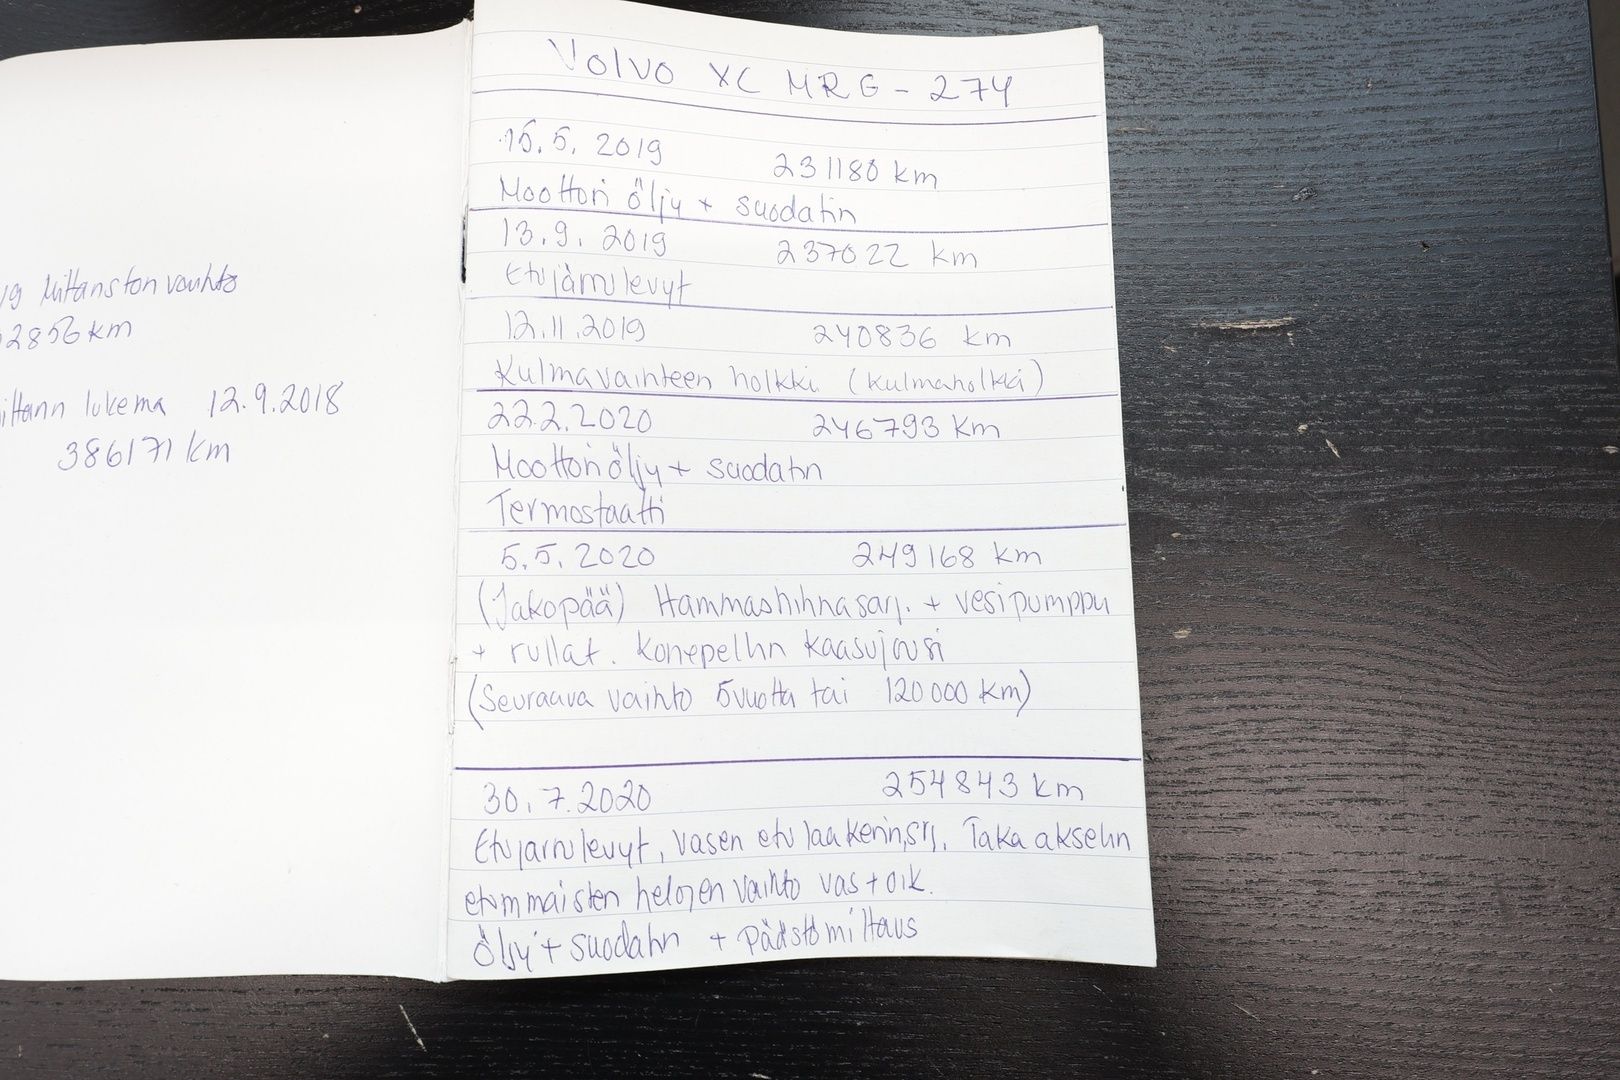 19 Mittariston vaihto
2856 km
mittarin lukema 12.9.2018
386171 km
Volvo XC MRG-274
15.5.2019 231180 km
Moottori öljy + suodatin
13.9.2019 237022 km
Etujärrulevyt
12.11.2019 240836 km
Kulmavaihteen holkki (kulmaholkki)
22.2.2020 246793 km
Moottoriöljy + suodatin
Termostaatti
5.5.2020 249168 km
(Jakopää) Hammashihnasarj. + vesipumppu
+ rullat. Konepellin kaasujousi
(Seuraava vaihto 5vuotta tai 120000 km)
30.7.2020 254843 km
Etujarrulevyt, vasen etulaakerin,srj. Taka akselin
etummaisten helojen vaihto vas+oik.
Öljy + suodatin + päästömittaus